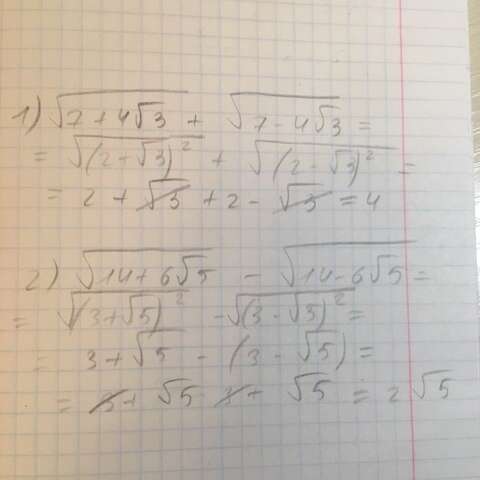 1) √(7 + 4√3) + √(7 - 4√3) =
= √(2 + √3)² + √(2 - √3)² =
= 2 + √3 + 2 - √3 = 4
2) √(14 + 6√5) - √(14 - 6√5) =
= √(3 + √5)² - √(3 - √5)² =
= 3 + √5 - (3 - √5) =
= 3 + √5 - 3 + √5 = 2√5